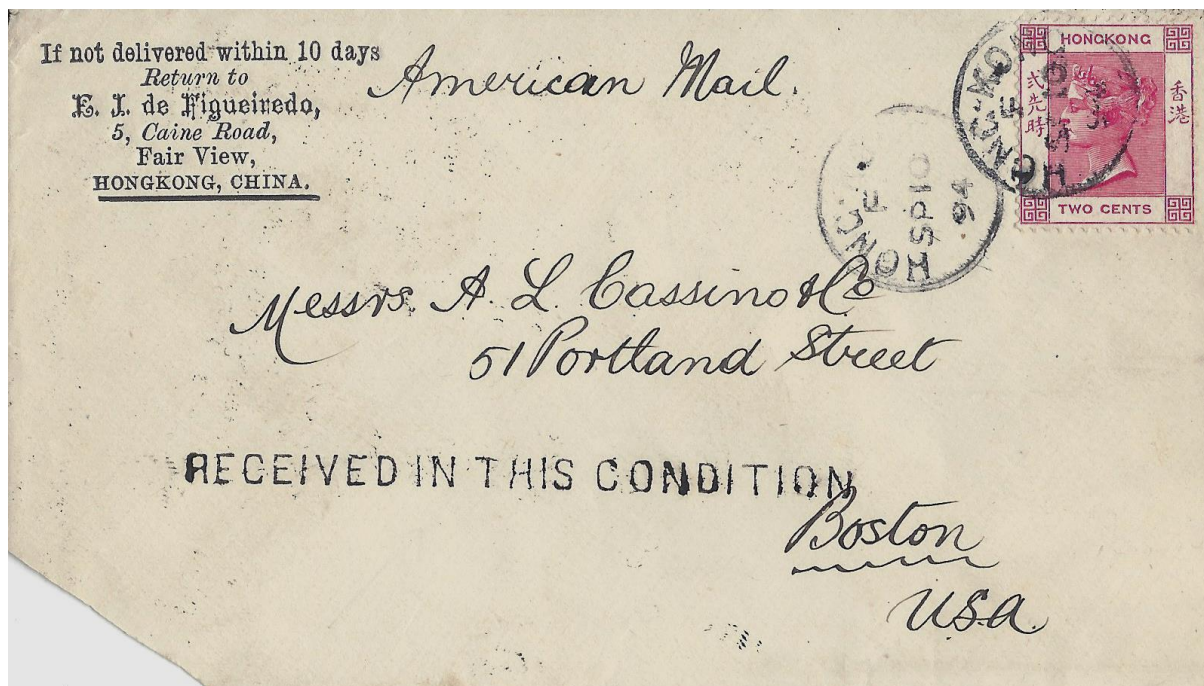 If not delivered within 10 days
Return to
E. J. de Figueiredo,
5, Caine Road,
Fair View,
HONGKONG, CHINA.
American Mail.
HONGKONG
香港
弍先時
TWO CENTS
HONG-KONG
F
HONG
F
SP 10
94
Messrs. A. L. Cassino & Co
51 Portland Street
RECEIVED IN THIS CONDITION
Boston
USA